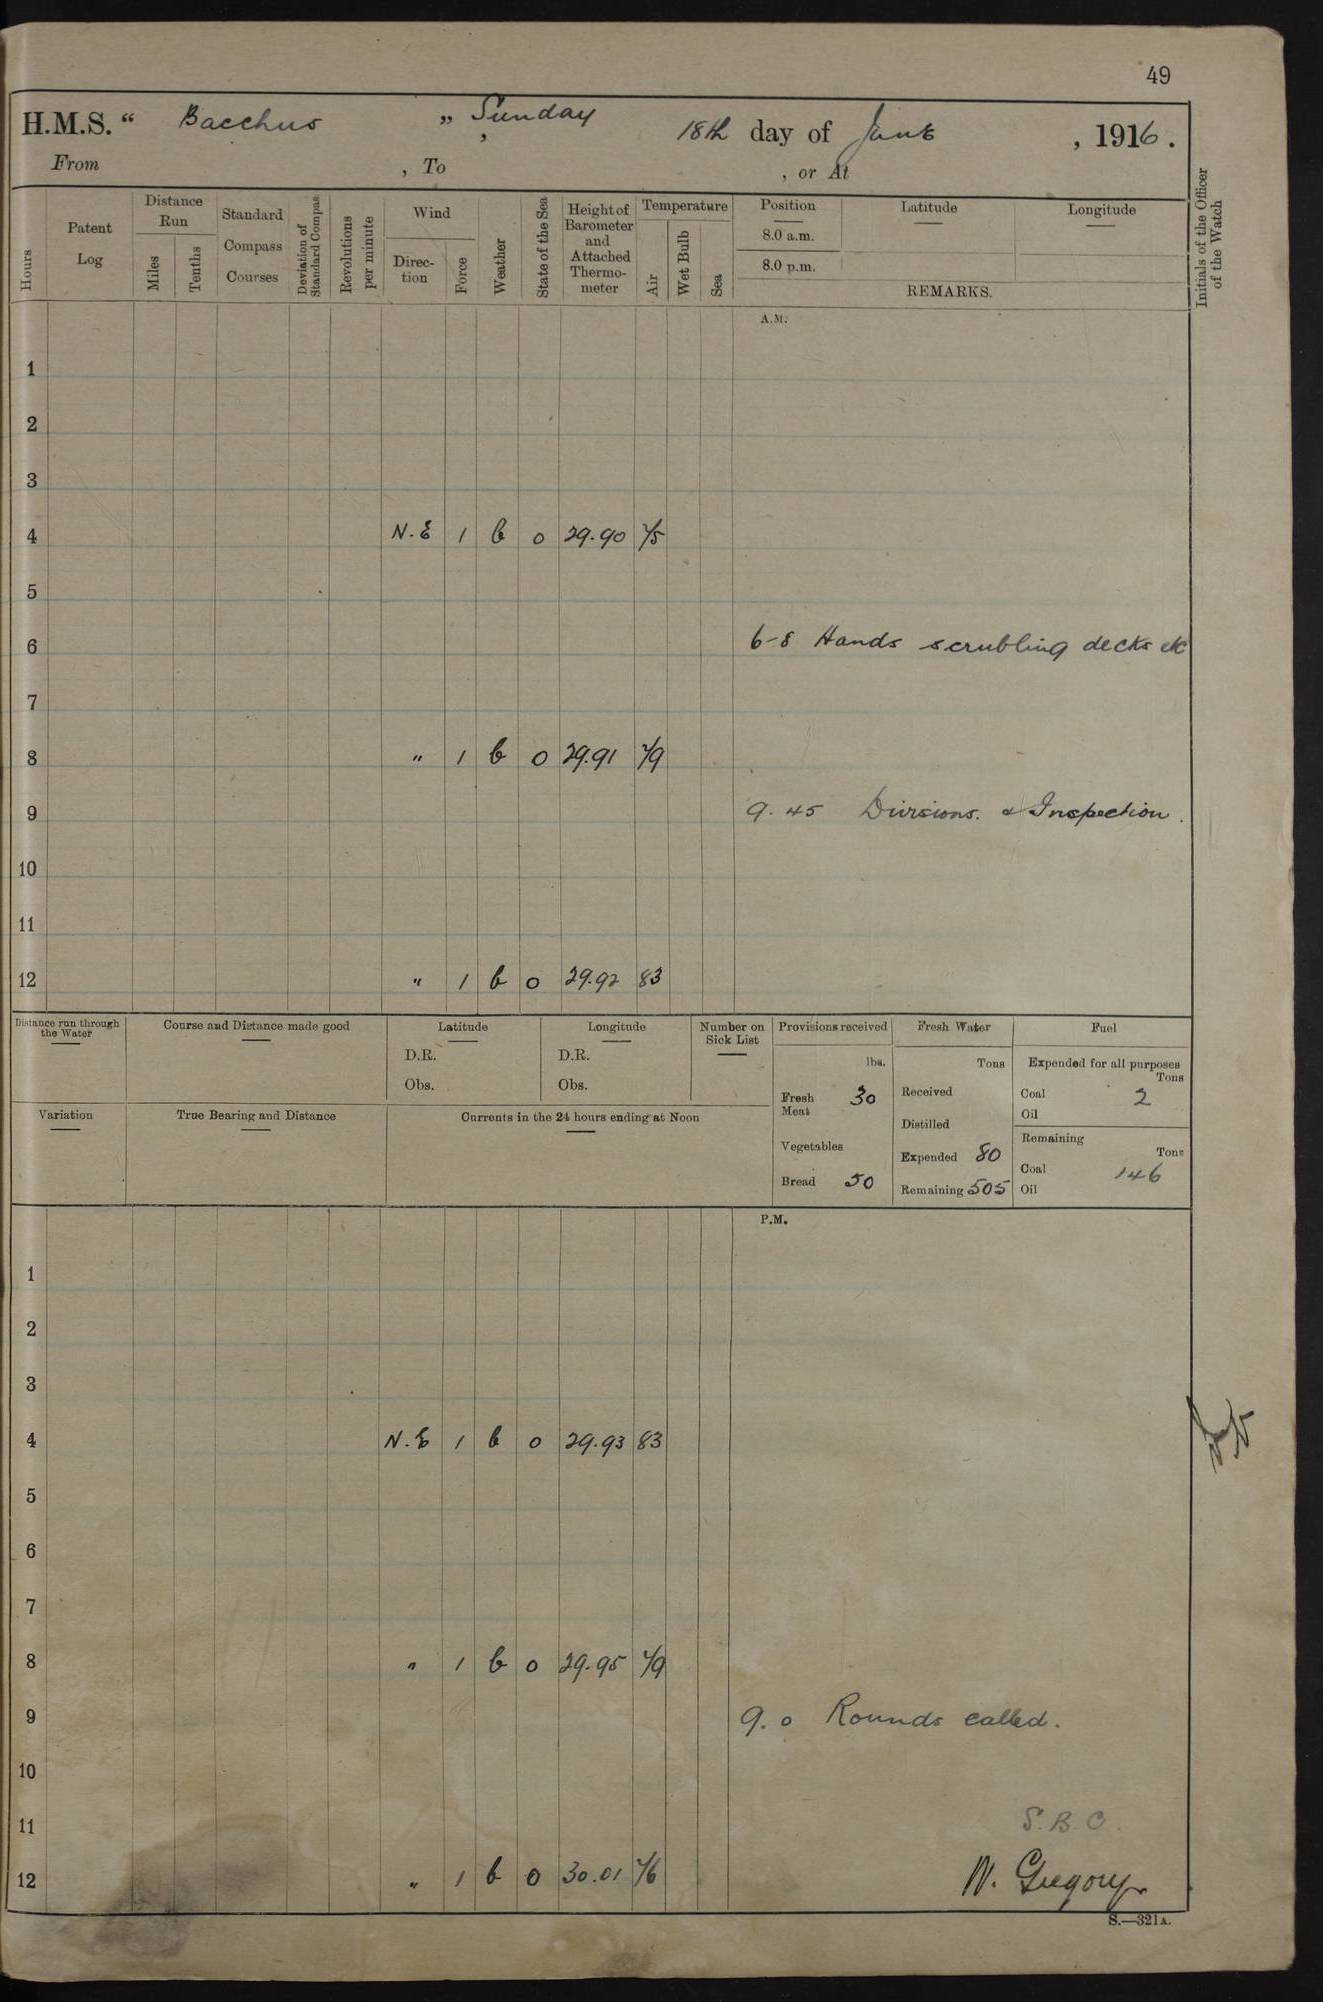 49
H.M.S. “ Bacchus „ , Sunday 18th day of June , 1916.
From , To , or At
Hours
Patent Log
Distance Run
Miles
Tenths
Standard Compass Courses
Deviation of Standard Compass
Revolutions per minute
Wind
Direction
Force
Weather
State of the Sea
Height of Barometer and Attached Thermometer
Temperature
Air
Wet Bulb
Sea
Position Latitude Longitude
8.0 a.m.
8.0 p.m.
REMARKS.
Initials of the Officer of the Watch
A.M.
1
2
3
4 N.E 1 b 0 29.90 75
5
6 6-8 Hands scrubbing decks etc
7
8 " 1 b 0 29.91 79
9 9.45 Divisions. & Inspection.
10
11
12 " 1 b 0 29.92 83
Distance run through the Water
Course and Distance made good
Latitude
D.R.
Obs.
Longitude
D.R.
Obs.
Number on Sick List
Provisions received
lbs.
Fresh Meat 30
Vegetables
Bread 50
Fresh Water
Tons
Received
Distilled
Expended 80
Remaining 505
Fuel
Expended for all purposes
Tons
Coal 2
Oil
Remaining
Tons
Coal 146
Oil
Variation
True Bearing and Distance
Currents in the 24 hours ending at Noon
P.M.
1
2
3
4 N.E 1 b 0 29.93 83
5
6
7
8 " 1 b 0 29.95 79
9 9.0 Rounds called.
10
11 S.B.C.
12 " 1 b 0 30.01 76 W. Gregory
S.—321A.